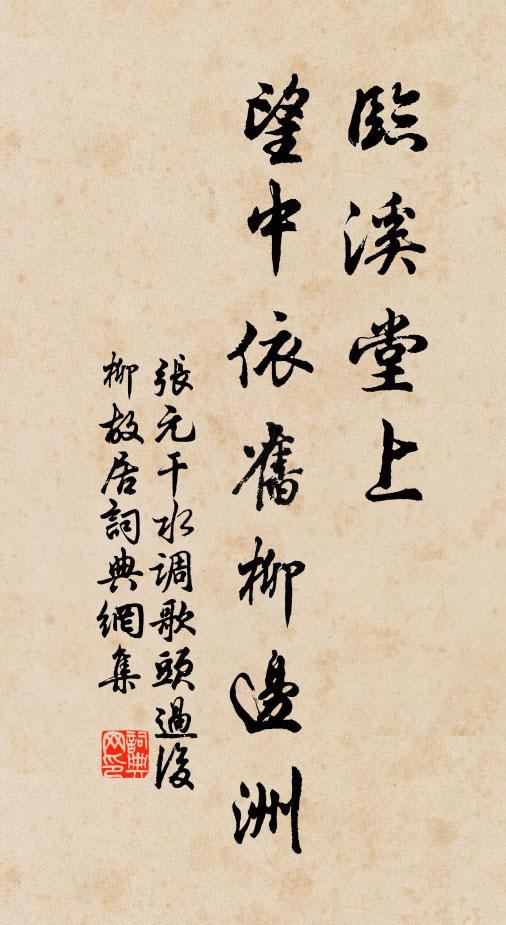 臨溪堂上
望中依舊柳邊洲
張元干水調歌頭過後
柳故居詞典網集
詞典網印